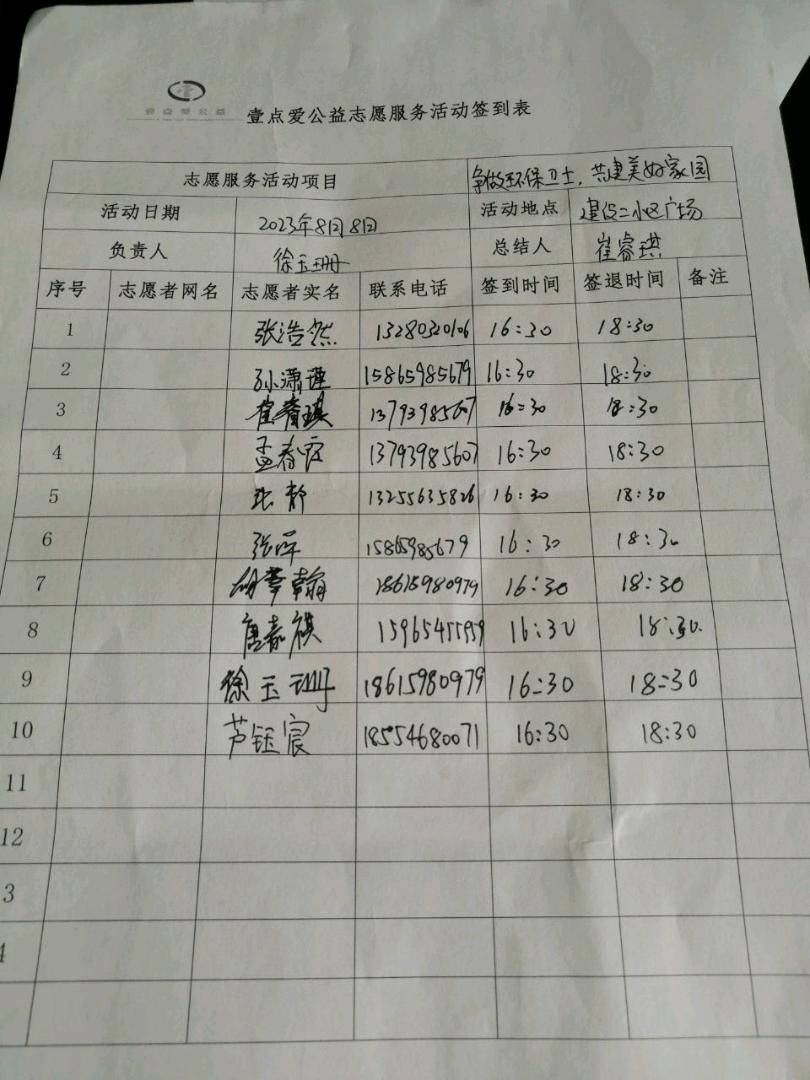 壹点爱公益
壹点爱公益志愿服务活动签到表
志愿服务活动项目 争做环保卫士，共建美好家园
活动日期 2023年8月8日 活动地点 建设二小区广场
负责人 徐玉珊 总结人 崔睿琪
序号 志愿者网名 志愿者实名 联系电话 签到时间 签退时间 备注
1 张浩然 13280320106 16:30 18:30
2 孙潇瑾 15865985679 16:30 18:30
3 崔睿琪 13793985607 16:30 18:30
4 孟春霞 13793985607 16:30 18:30
5 张静 13255635826 16:30 18:30
6 张萍 15865985679 16:30 18:30
7 胡翰 18615980979 16:30 18:30
8 唐嘉祺 15965455959 16:30 18:30.
9 徐玉珊 18615980979 16:30 18:30
10 芦钰宸 18554680071 16:30 18:30
11
12
3
4